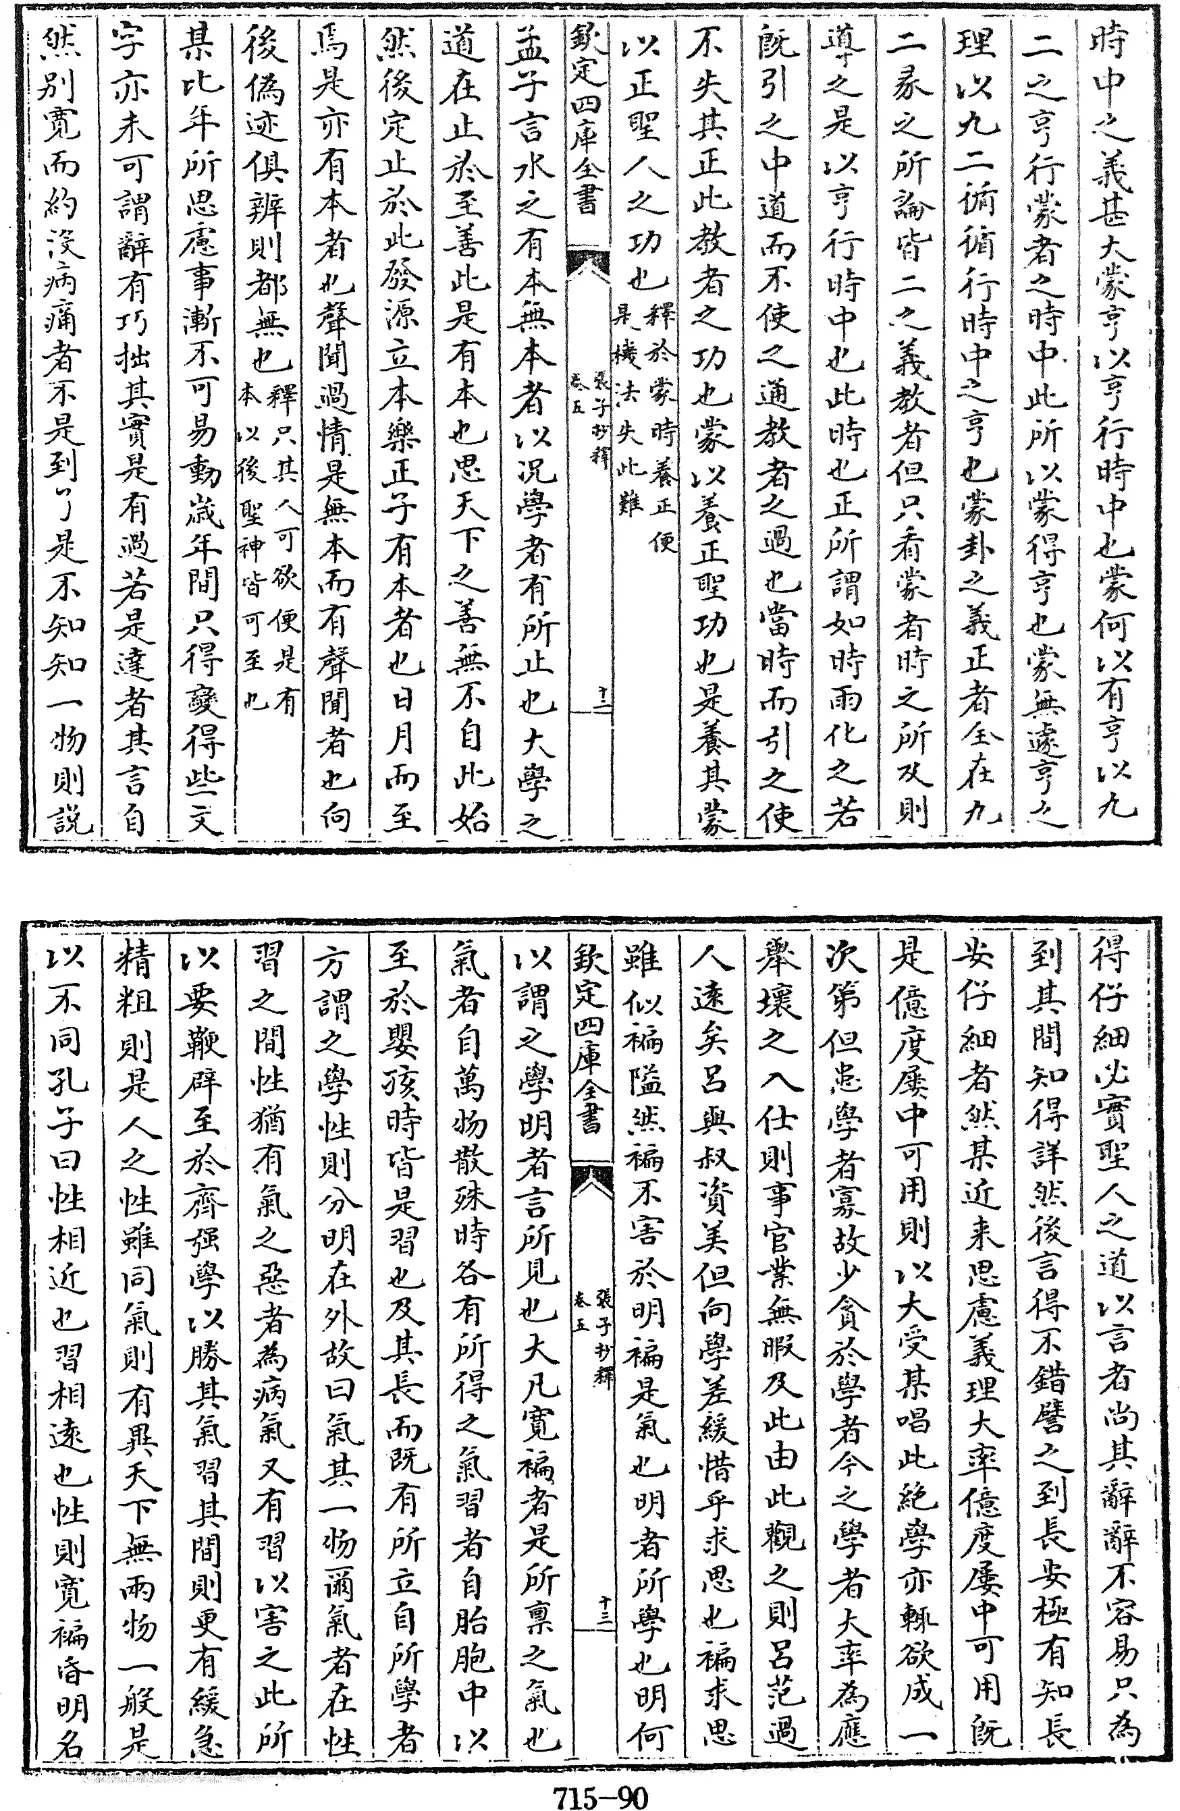 時中之義甚大蒙亨以亨行時中也蒙何以有亨以九
二之亨行蒙者之時中此所以蒙得亨也蒙無遽亨之
理以九二循循行時中之亨也蒙卦之義正者全在九
二彖之所論皆二之義教者但只看蒙者時之所及則
導之是以亨行時中也此時也正所謂如時雨化之若
既引之中道而不使之通教者之過也當時而引之使
不失其正此教者之功也蒙以養正聖功也是養其蒙
以正聖人之功也釋於蒙時養正便
是機法失此難
欽定四庫全書
張子抄釋
卷五
十二
孟子言水之有本無本者以况學者有所止也大學之
道在止於至善此是有本也思天下之善無不自此始
然後定止於此發源立本樂正子有本者也日月而至
焉是亦有本者也聲聞過情是無本而有聲聞者也向
後偽迹俱辨則都無也釋只其人可欲便是有
本以後聖神皆可至也
某比年所思慮事漸不可易動歲年間只得變得些文
字亦未可謂辭有巧拙其實是有過若是達者其言自
然别寛而約没病痛者不是到了是不知知一物則説
得仔細必實聖人之道以言者尚其辭辭不容易只為
到其間知得詳然後言得不錯譬之到長安極有知長
安仔細者然某近来思慮義理大率億度屢中可用既
是億度屢中可用則以大受某唱此絶學亦輒欲成一
次第但患學者寡故少貪於學者今之學者大率為應
舉壞之入仕則事官業無暇及此由此觀之則呂范過
人逺矣呂與叔資美但向學差緩惜乎求思也褊求思
雖似褊隘然褊不害於明褊是氣也明者所學也明何
欽定四庫全書
張子抄釋
卷五
十三
以謂之學明者言所見也大凡寛褊者是所禀之氣也
氣者自萬物散殊時各有所得之氣習者自胎胞中以
至於嬰孩時皆是習也及其長而既有所立自所學者
方謂之學性則分明在外故曰氣其一物爾氣者在性
習之間性猶有氣之惡者為病氣又有習以害之此所
以要鞭辟至於齊强學以勝其氣習其間則更有緩急
精粗則是人之性雖同氣則有異天下無兩物一般是
以不同孔子曰性相近也習相逺也性則寛褊昏明名
715-90